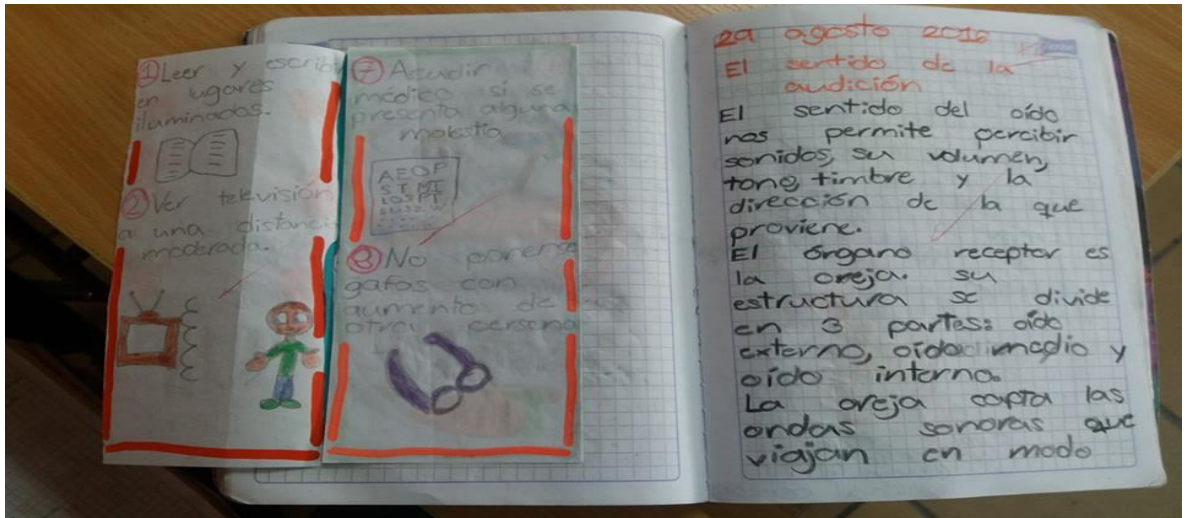 ①Leer y escribir
en lugares
iluminados.
②Ver televisión
a una distancia
moderada.
⑦Acudir
médico si se
presenta alguna
molestia
AEOP
⑧No ponerse
gafas con
aumento de
otra persona
29 agosto 2016
El sentido de la
audición
El sentido del oído
nos permite percibir
sonidos, su volumen,
tono, timbre y la
dirección de la que
proviene.
El órgano receptor es
la oreja. su
estructura se divide
en 3 partes: oído
externo, oído medio y
oído interno.
La oreja capta las
ondas sonoras que
viajan en modo